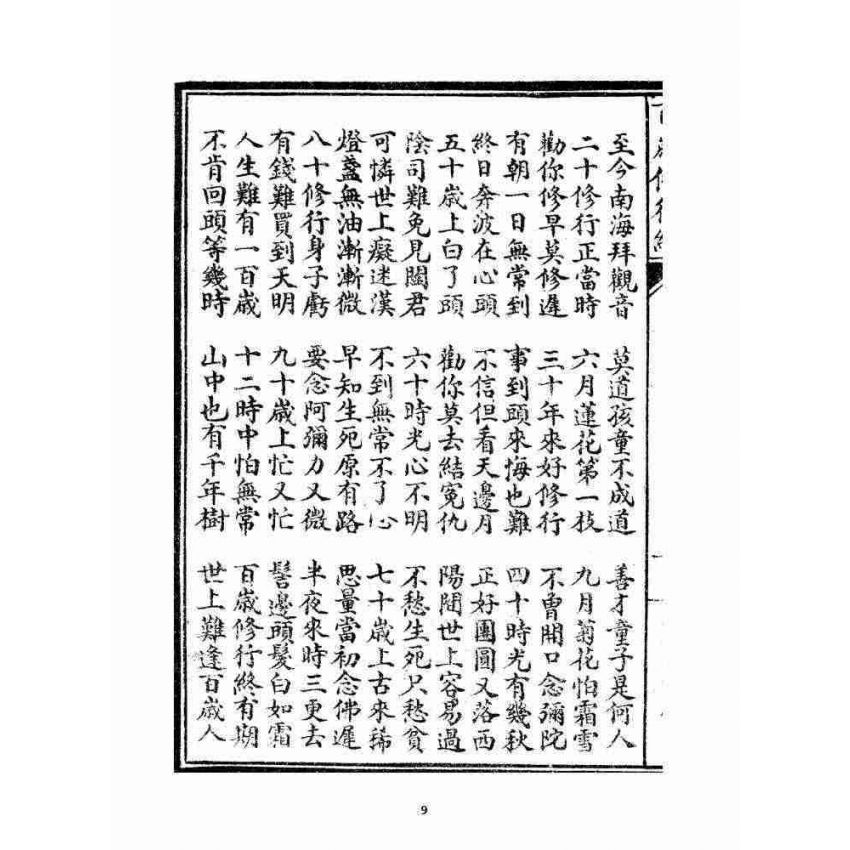 至今南海拜觀音　莫道孩童不成道　善才童子是何人
二十修行正當時　六月蓮花第一枝　九月菊花怕霜雪
勸你修早莫修遲　三十年來好修行　不曾開口念彌陀
有朝一日無常到　事到頭來悔也難　四十時光有幾秋
終日奔波在心頭　不信但看天邊月　正好團圓又落西
五十歲上白了頭　勸你莫去結冤仇　陽間世上容易過
陰司難免見閻君　六十時光心不明　不愁生死只愁貧
可憐世上癡迷漢　不到無常不了心　七十歲上古來稀
燈盞無油漸漸微　早知生死原有路　思量當初念佛遲
八十修行身子虧　要念阿彌力又微　半夜來時三更去
有錢難買到天明　九十歲上忙又忙　髻邊頭髮白如霜
人生難有一百歲　十二時中怕無常　百歲修行終有期
不肯回頭等幾時　山中也有千年樹　世上難逢百歲人
9